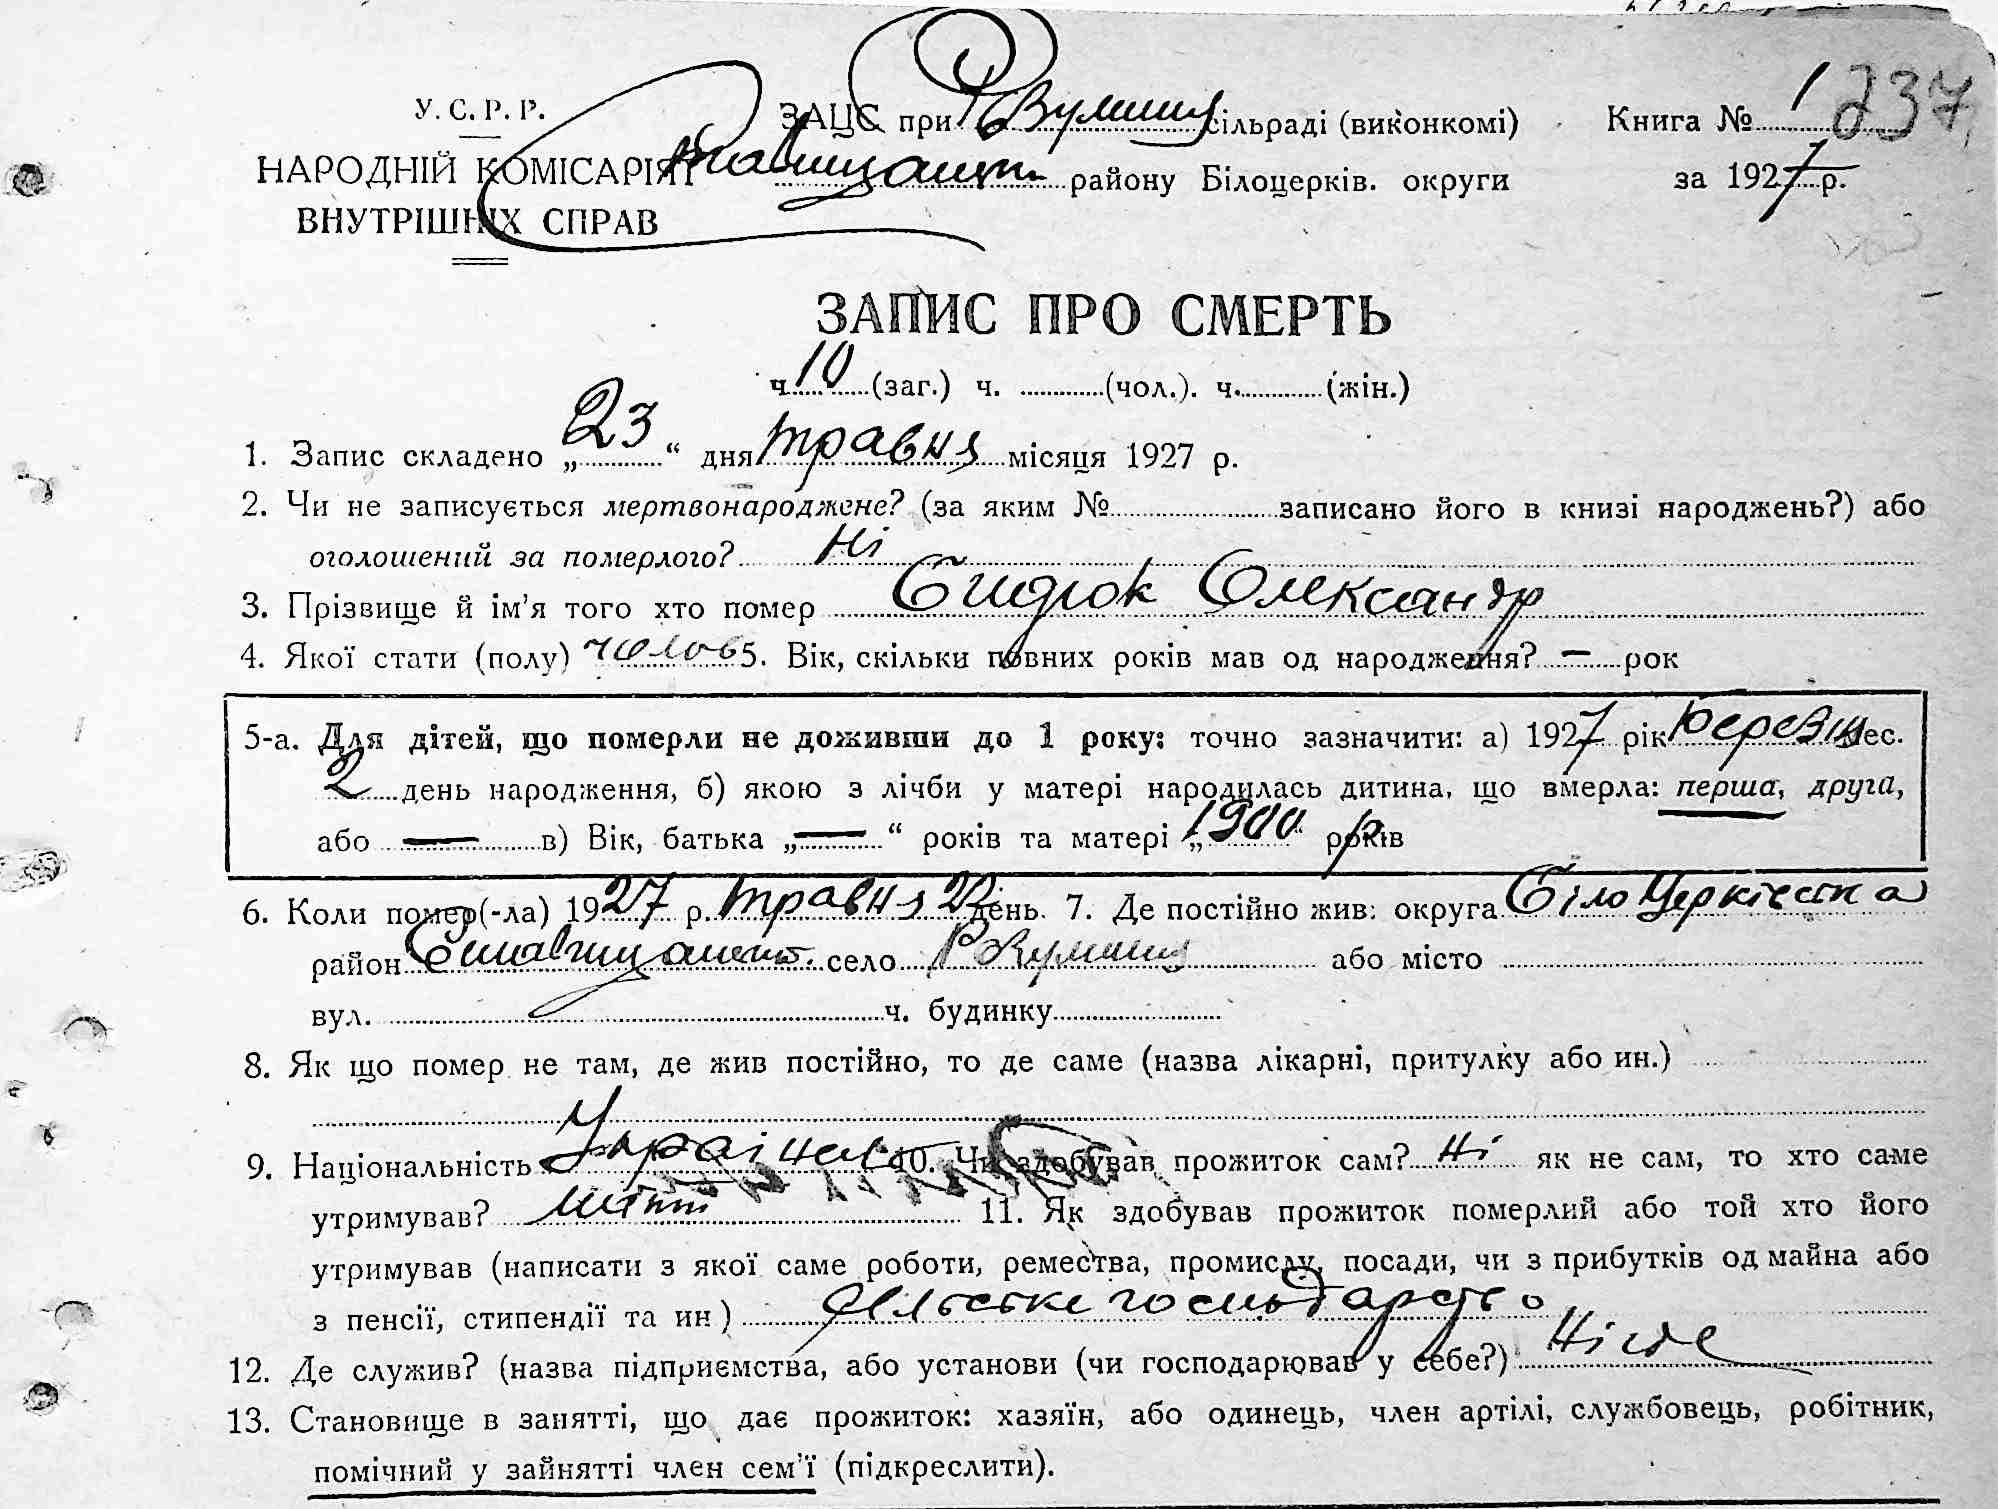 У.С.Р.Р.
НАРОДНІЙ КОМІСАРІЯТ
ВНУТРІШНІХ СПРАВ
ЗАЦС при сільраді (виконкомі)
району Білоцерків. округи
Книга № 1 237
за 1927 р.
ЗАПИС ПРО СМЕРТЬ
ч. 10 (заг.) ч. (чол.). ч. (жін.)
1. Запис складено „23“ дня травня місяця 1927 р.
2. Чи не записується мертвонароджене? (за яким № записано його в книзі народжень?) або
оголошений за померлого? Ні
3. Прізвище й ім’я того хто помер Сидюк Олександр
4. Якої стати (полу) чолов 5. Вік, скільки повних років мав од народження? — рок
5-а. Для дітей, що померли не доживши до 1 року: точно зазначити: а) 1927 рік березня мес.
2 день народження, б) якою з лічби у матері народилась дитина, що вмерла: перша, друга,
або — в) Вік, батька „—“ років та матері „1900“ р років
6. Коли помер(-ла) 1927 р. травня 22 день. 7. Де постійно жив: округа Білоцерківська
район село або місто
вул. ч. будинку
8. Як що помер не там, де жив постійно, то де саме (назва лікарні, притулку або ин.)
9. Національність 10. Чи здобував прожиток сам? Ні як не сам, то хто саме
утримував? 11. Як здобував прожиток померлий або той хто його
утримував (написати з якої саме роботи, ремества, промислу, посади, чи з прибутків од майна або
з пенсії, стипендії та ин) сільське господарство
12. Де служив? (назва підприємства, або установи (чи господарював у себе?) Ніде
13. Становище в занятті, що дає прожиток: хазяїн, або одинець, член артілі, службовець, робітник,
помічний у зайнятті член сем’ї (підкреслити).